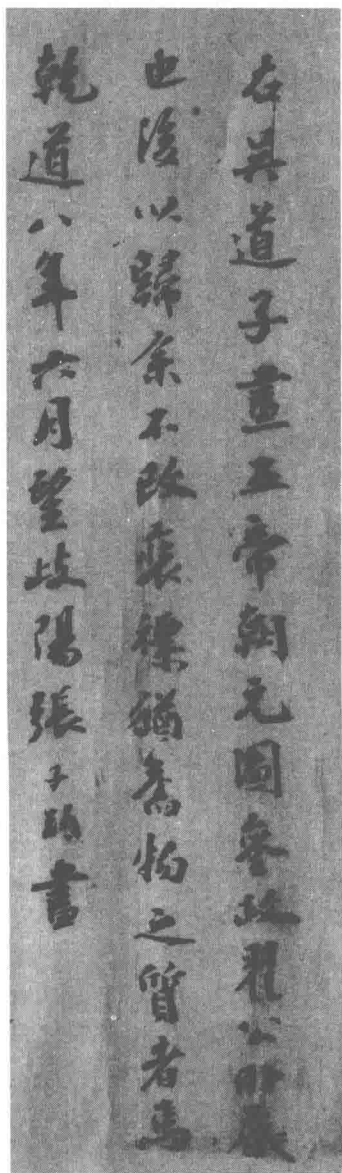 右吳道子畫五帝朝元圖參政翟公所藏
也後以歸余不改裝褾猶舊物之質者焉
乾道八年六月望岐陽張子書